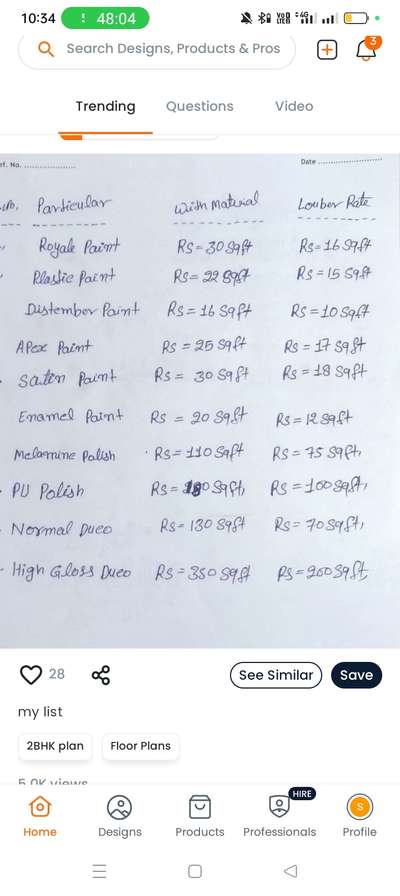 10:34 48:04 VoD 4G
Search Designs, Products & Pros 3
Trending Questions Video
ef. No. .................... Date ........................
No. Particular With Material Louber Rate
Royale Paint Rs=30 Sqft Rs=16 Sqft
Plastic Paint Rs=22 Sqft Rs=15 Sqft
Distember Paint Rs=16 Sqft Rs=10 Sqft
Apex Paint Rs=25 Sqft Rs=17 Sqft
Saten Paint Rs= 30 Sqft Rs=18 Sqft
Enamel Paint Rs = 20 Sqft Rs=12 Sqft
Melamine Polish Rs=110 Sqft Rs=75 Sqft,
PU Polish Rs=180 Sqft, Rs=100 Sqft,
Normal Dueo Rs=130 Sqft Rs=70 Sqft,
High Gloss Dueo Rs=350 Sqft Rs=200 Sqft,
28 See Similar Save
my list
2BHK plan Floor Plans
5.0K views
HIRE
S
Home Designs Products Professionals Profile